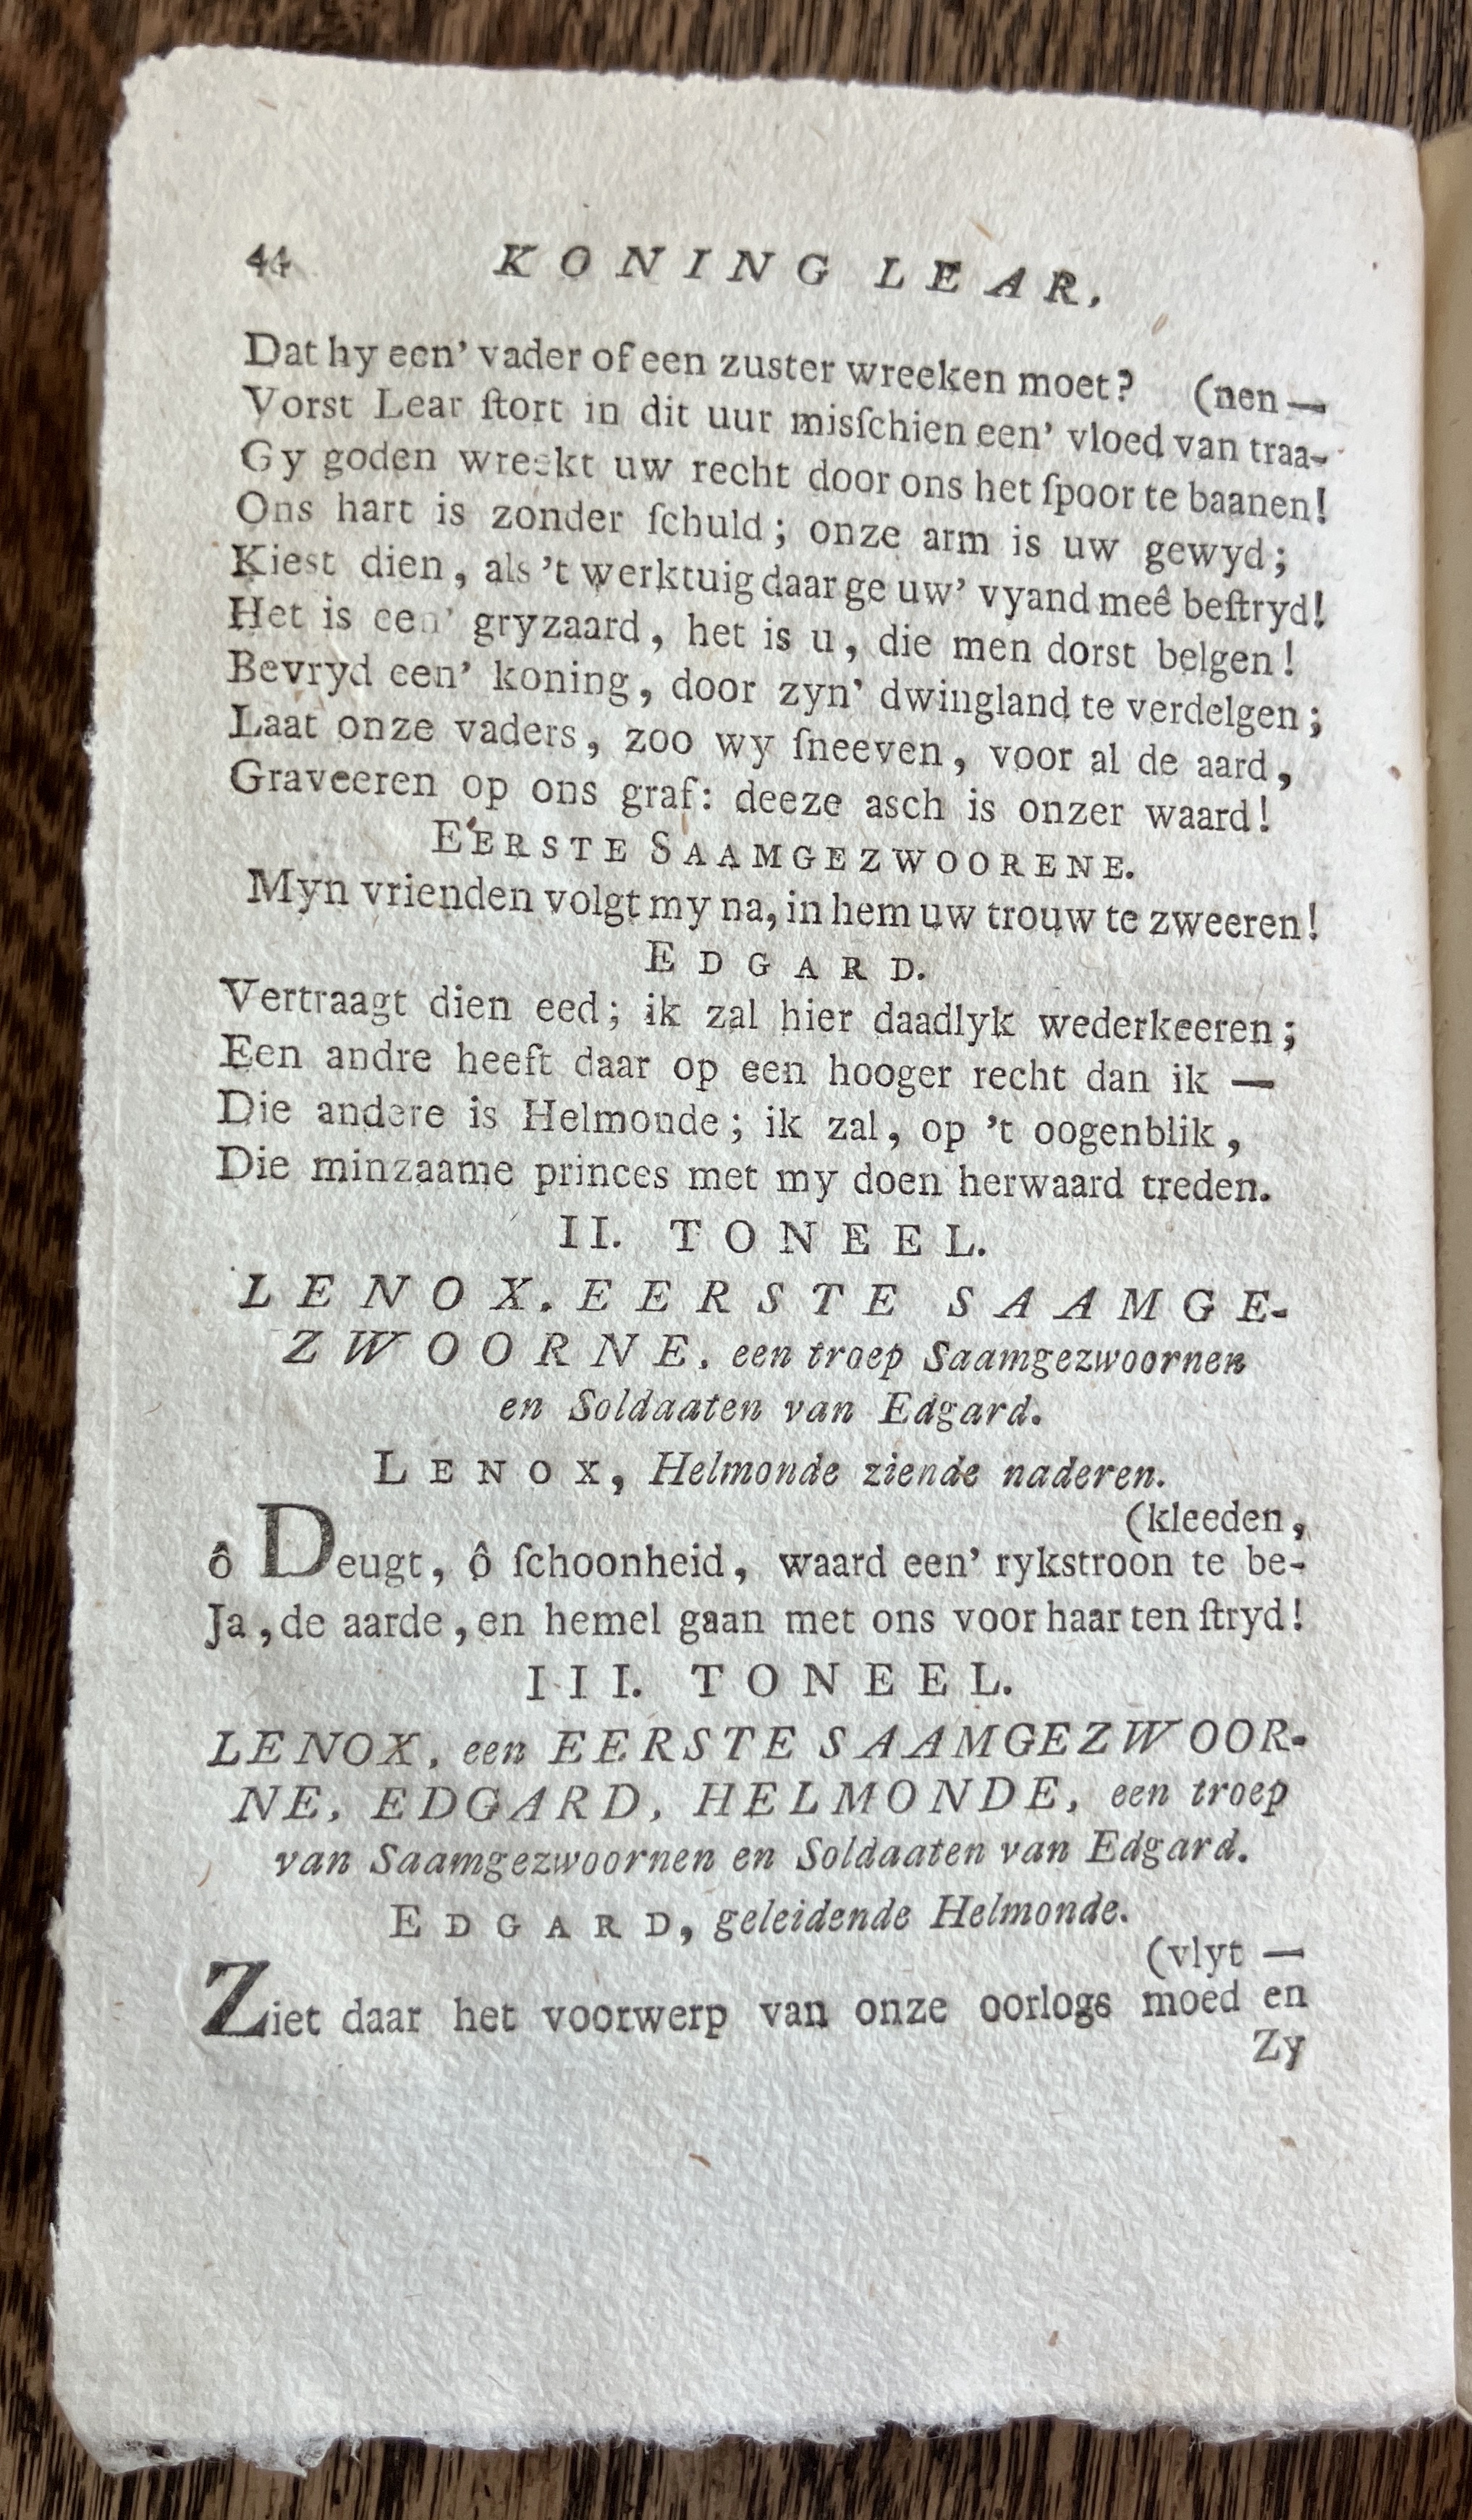 44 KONING LEAR,
Dat hy een’ vader of een zuster wreeken moet? (nen —
Vorst Lear ſtort in dit uur misſchien een’ vloed van traa-
Gy goden wreekt uw recht door ons het ſpoor te baanen!
Ons hart is zonder ſchuld; onze arm is uw gewyd;
Kiest dien, als ’t werktuig daar ge uw’ vyand meê beſtryd!
Het is een’ gryzaard, het is u, die men dorst belgen!
Bevryd een’ koning, door zyn’ dwingland te verdelgen;
Laat onze vaders, zoo wy ſneeven, voor al de aard,
Graveeren op ons graf: deeze asch is onzer waard!
EERSTE SAAMGEZWOORENE.
Myn vrienden volgt my na, in hem uw trouw te zweeren!
EDGARD.
Vertraagt dien eed; ik zal hier daadlyk wederkeeren;
Een andre heeft daar op een hooger recht dan ik —
Die andere is Helmonde; ik zal, op ’t oogenblik,
Die minzaame princes met my doen herwaard treden.
II. TONEEL.
LENOX. EERSTE SAAMGE-
ZWOORNE, een troep Saamgezwoornen
en Soldaaten van Edgard.
LENOX, Helmonde ziende naderen.
(kleeden,
ô Deugt, ô ſchoonheid, waard een’ rykstroon te be-
Ja, de aarde, en hemel gaan met ons voor haar ten ſtryd!
III. TONEEL.
LENOX, een EERSTE SAAMGEZWOOR-
NE, EDGARD, HELMONDE, een troep
van Saamgezwoornen en Soldaaten van Edgard.
EDGARD, geleidende Helmonde.
(vlyt —
Ziet daar het voorwerp van onze oorlogs moed en
Zy